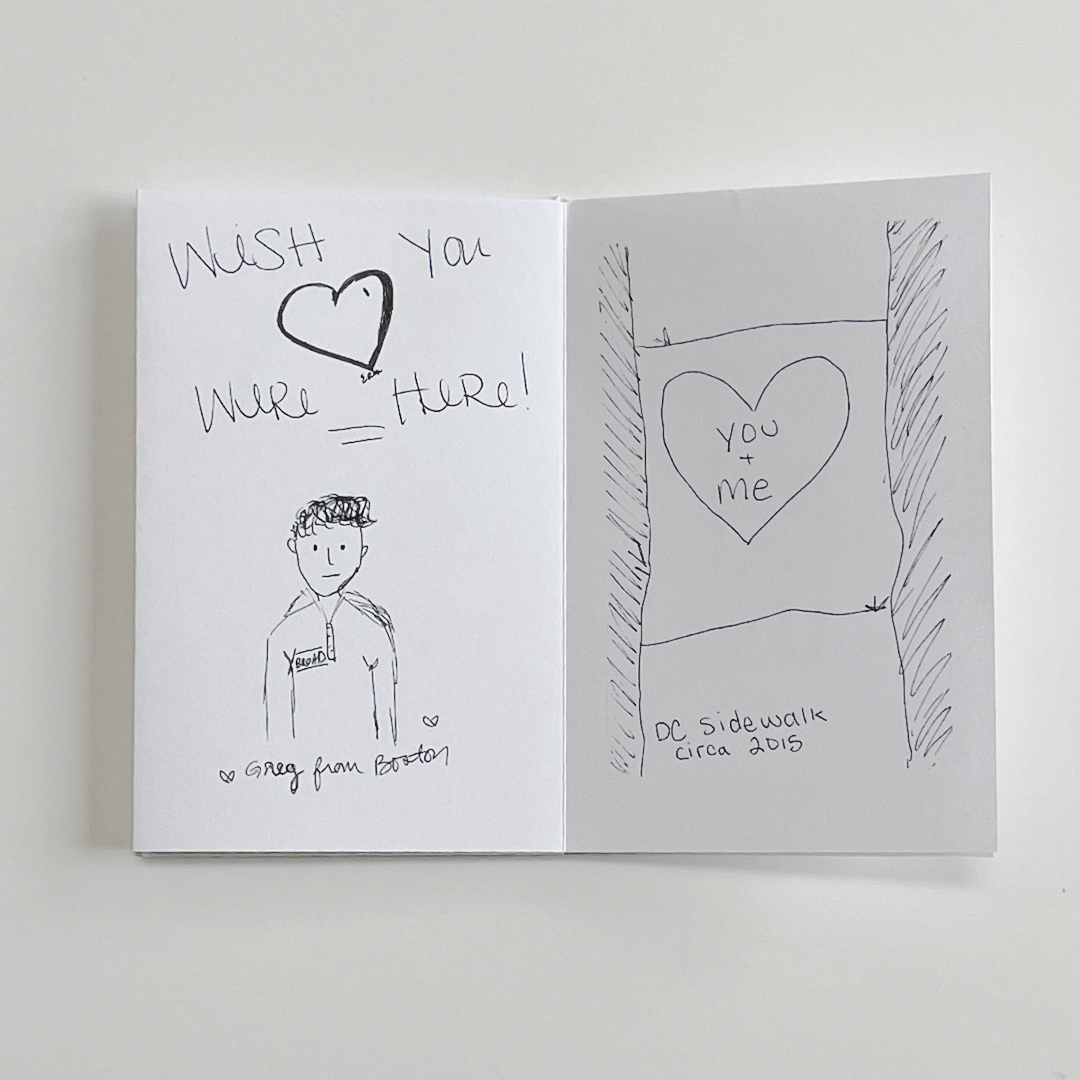 WISH YOU
WERE HERE!
BROAD
Greg from Boston
YOU
+
Me
DC Sidewalk
circa 2015